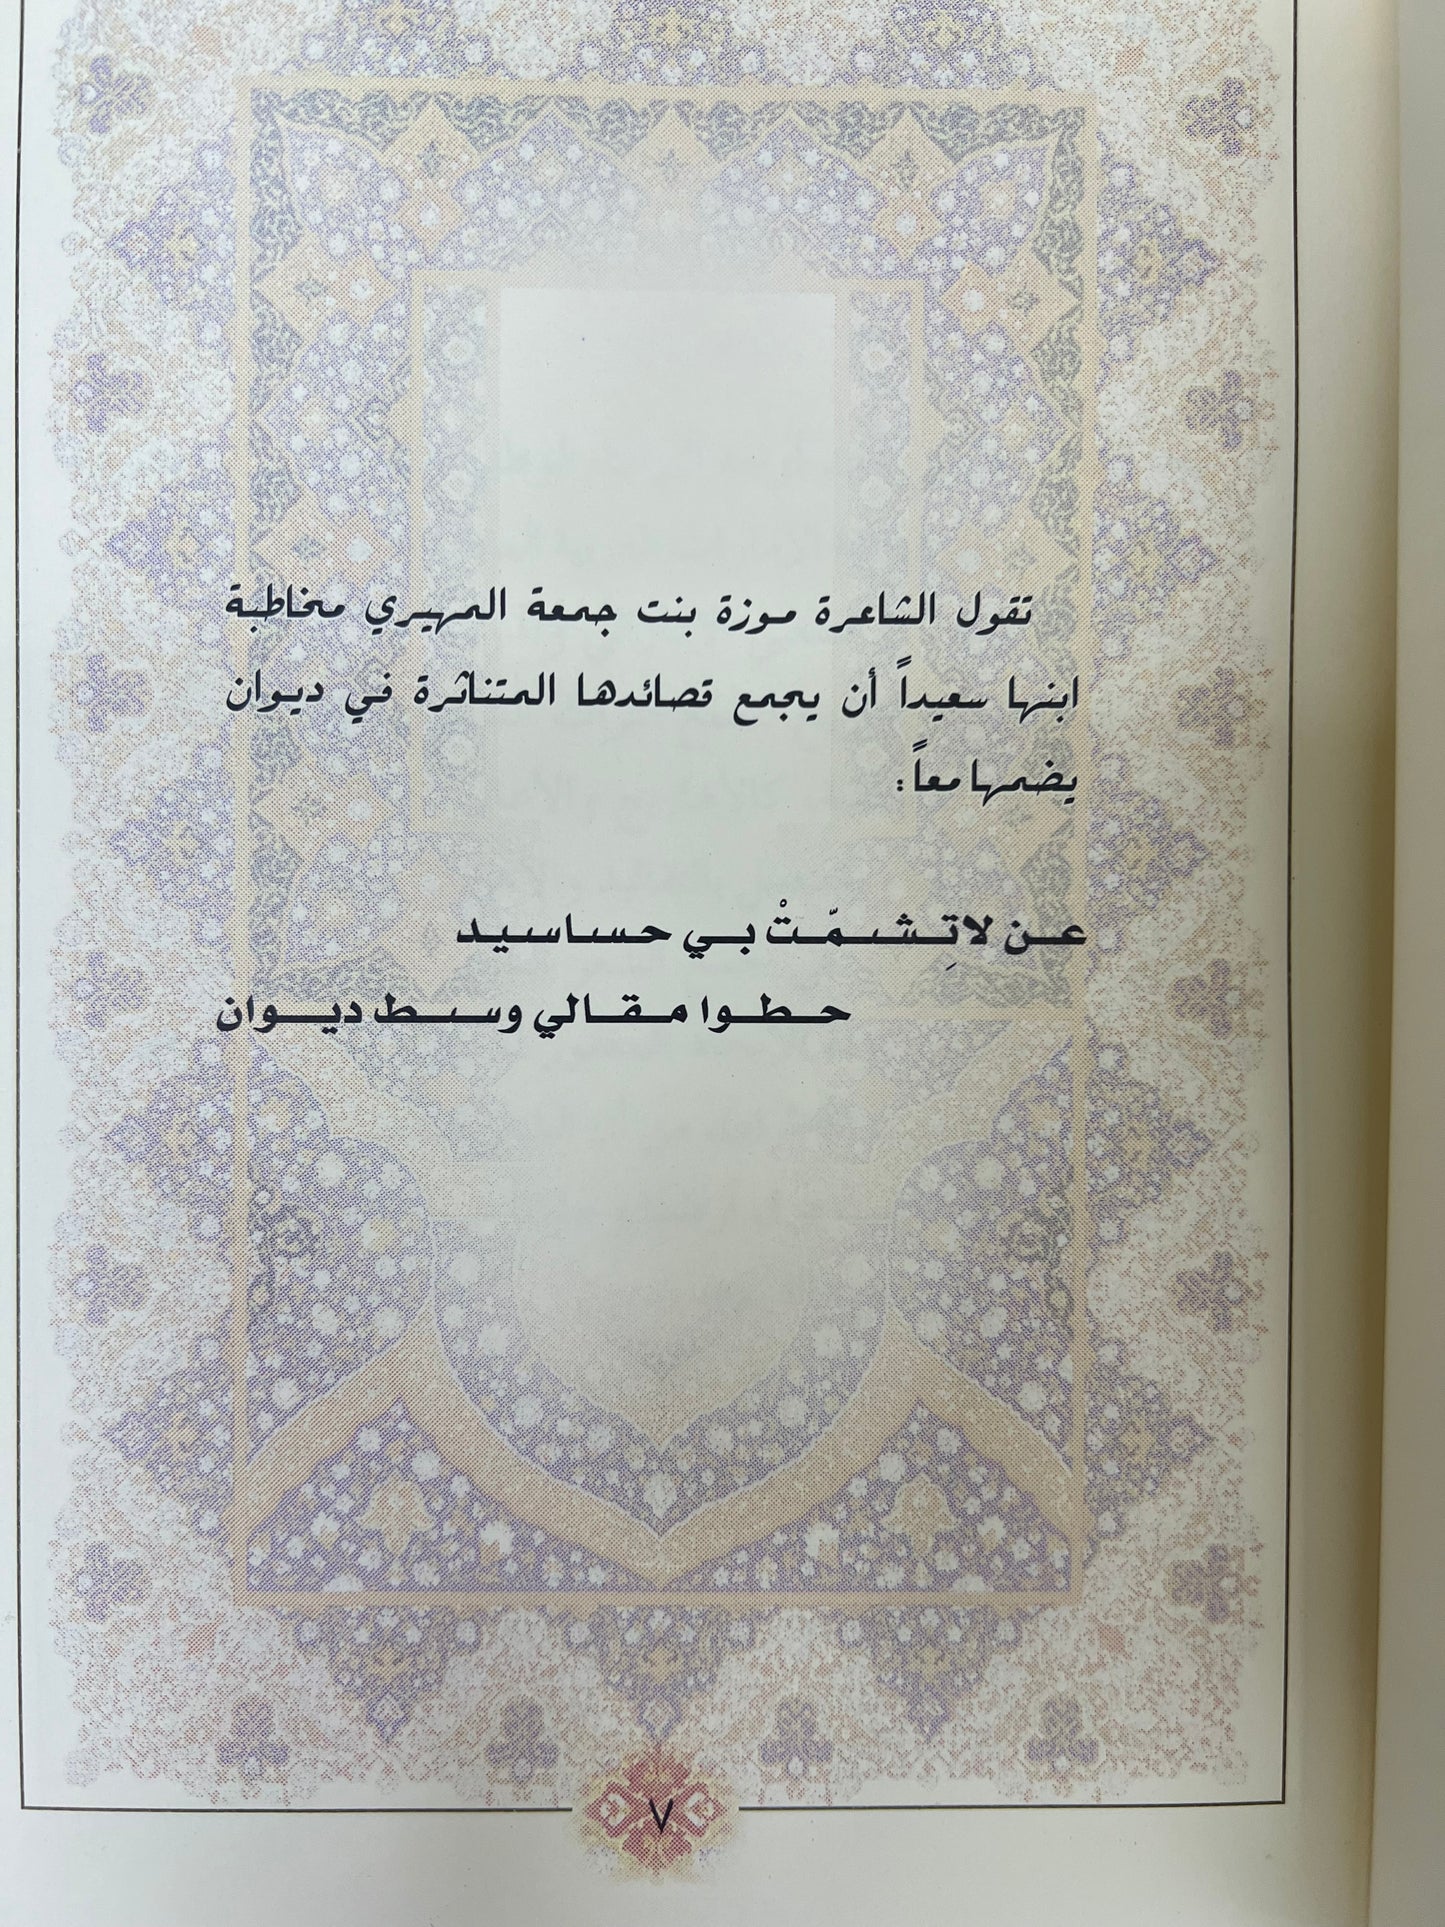 تقول الشاعرة موزة بنت جمعة المهيري مخاطبة
ابنها سعيداً أن يجمع قصائدها المتناثرة في ديوان
يضمها معاً :
عن لاتِشمّتْ بي حساسيد
حطوا مقالي وسط ديوان
٧